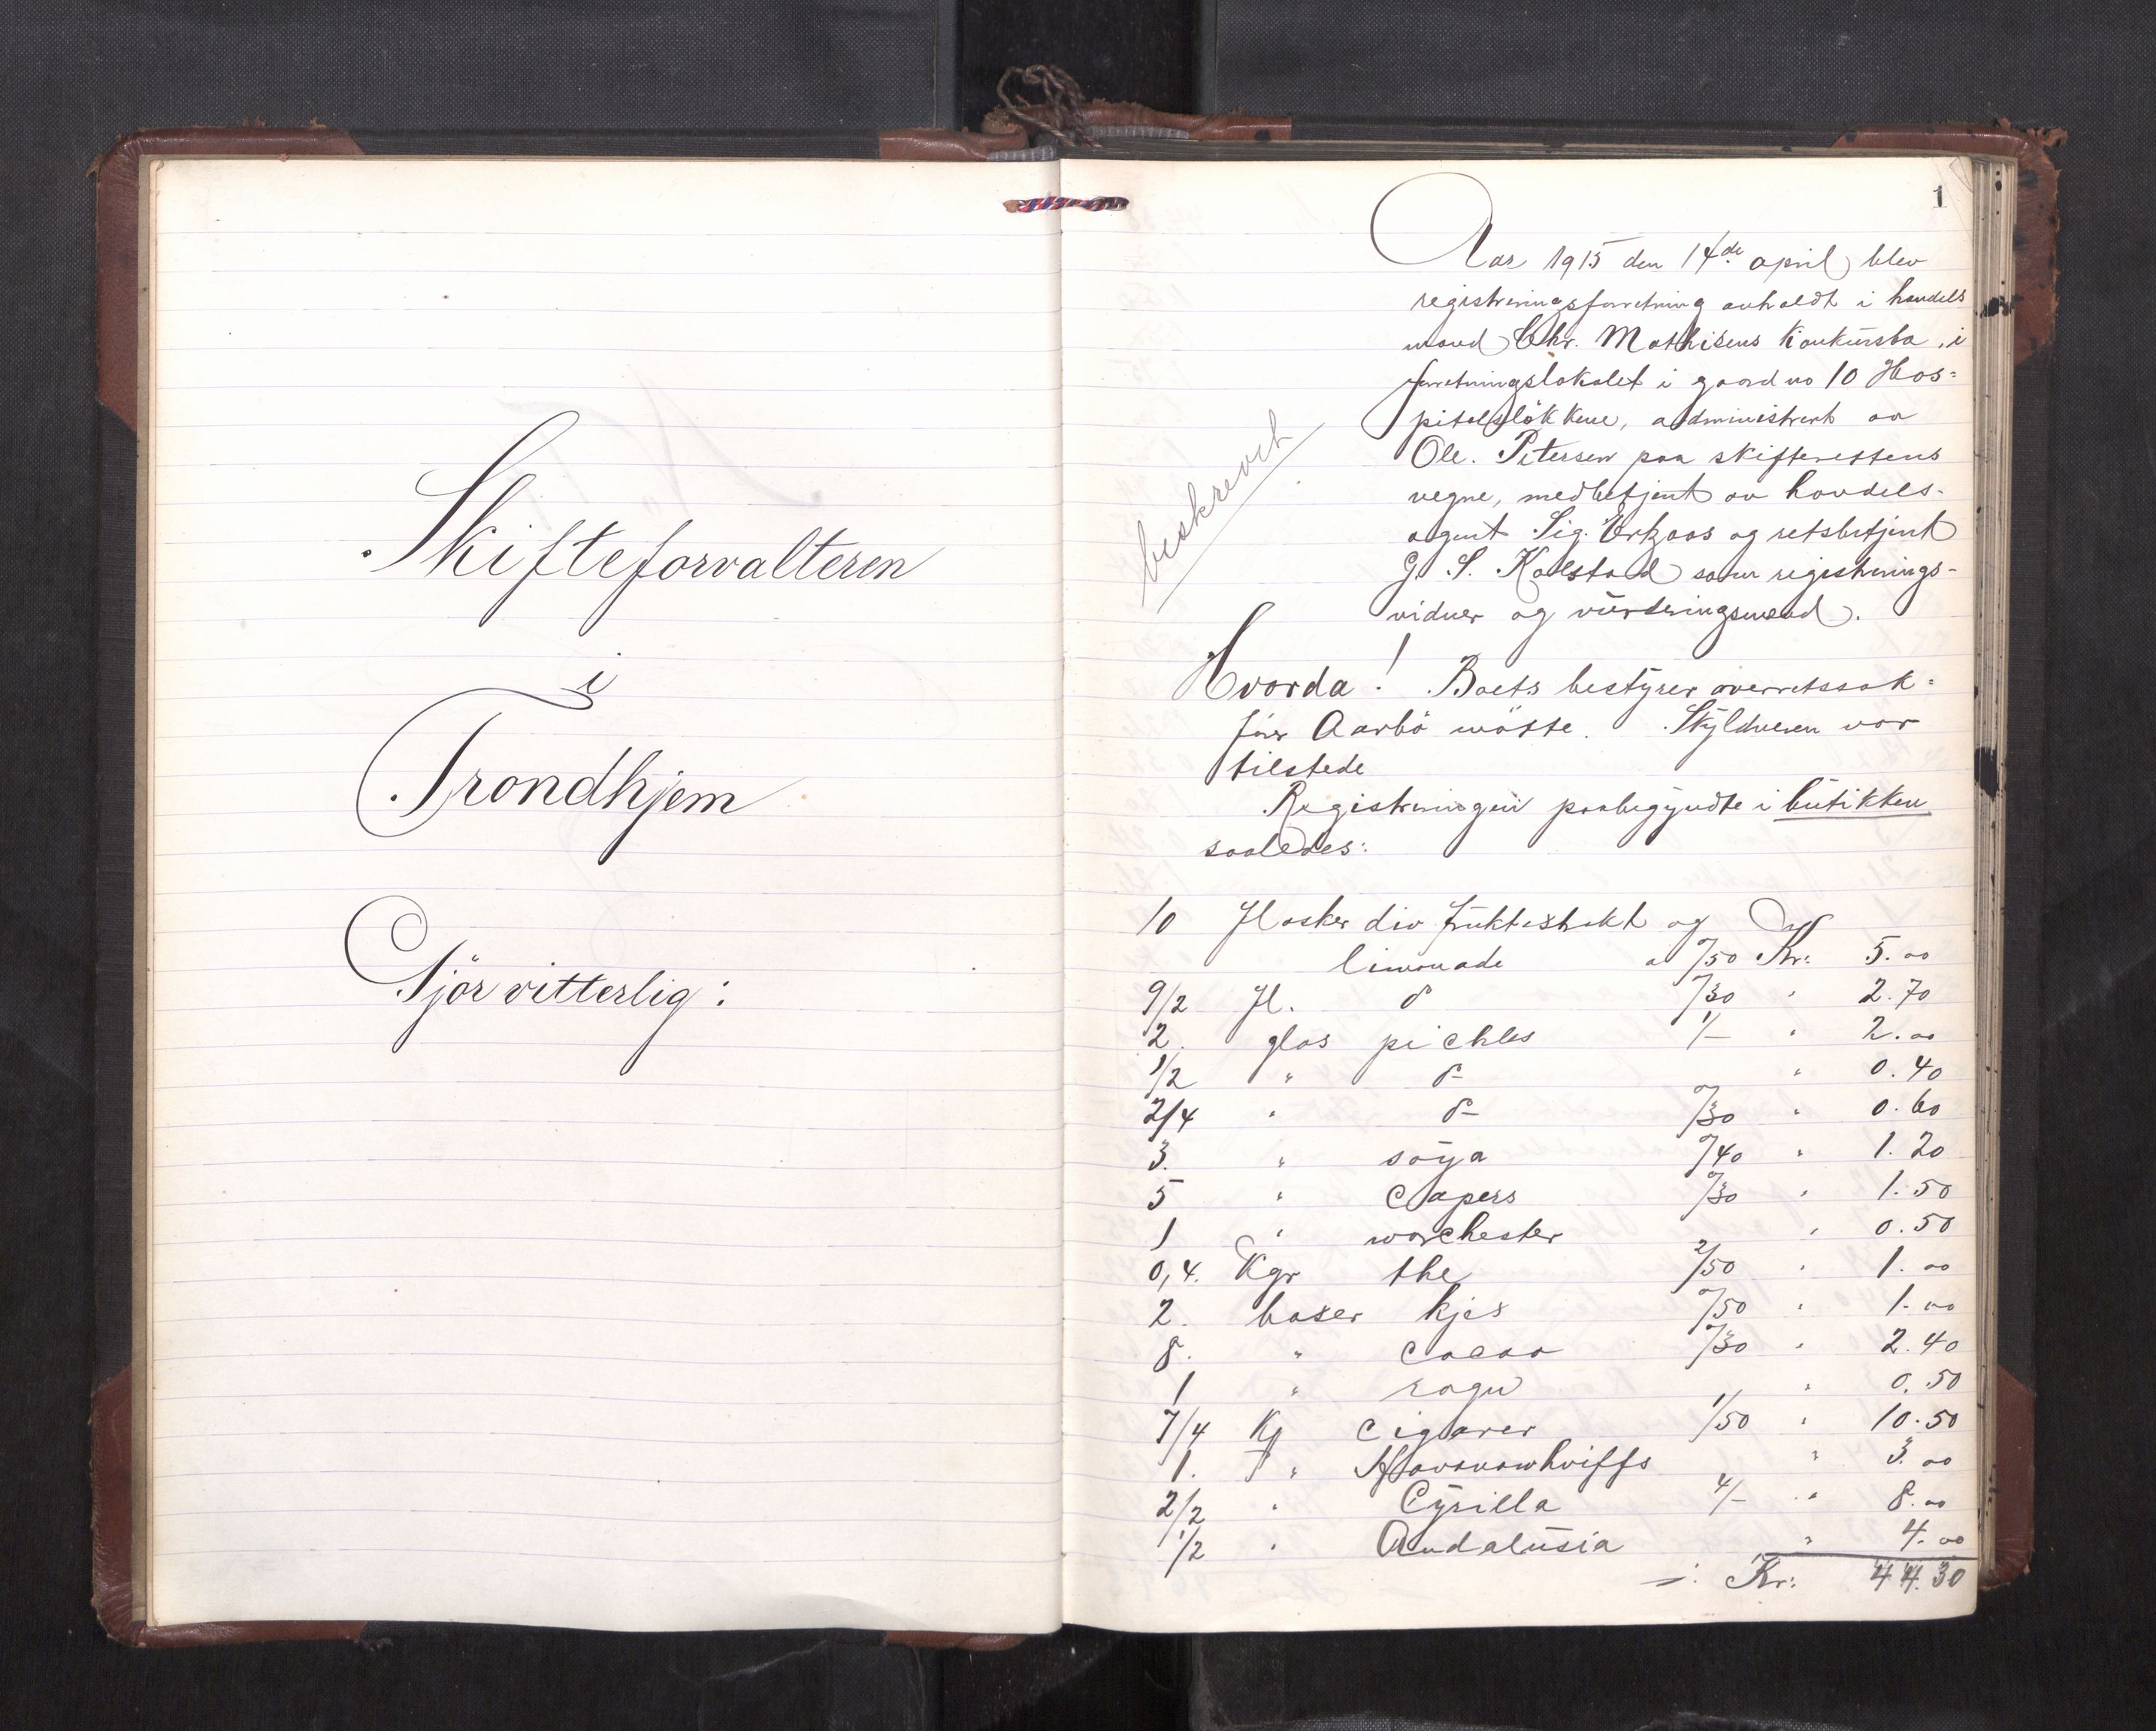 Skifteforvalteren
i
Trondhjem
Gjör vitterlig:
1
Aar 1915 den 14de april blev
registreringsforretning avholdt i handels
mand Chr. Mathisens Konkursbo, i
forretningslokalet i gaard no 10 Hos=
pitalsløkkene, administrert av
Ole. Petersen paa skifterettens
vegne, medbetjent av handels-
agent Sig. og retsbetjent
G. S. Kolstad som registrerings-
vidner og vurderingsmænd.
beskrevet
Hvorda! Boets bestyrer overretssak=
fører Aarbö mötte. Skyldneren var
tilstede
Registreringen paabegyndte i butikken
saaledes:
10 Flasker div fruktextrakt og
limonade a 0/50 Kr: 5.00
9/2 Fl. do 0/30 " 2.70
2. glas pickles 1/- " 2.00
1/2 " do " 0.40
2/4 " do 0/30 " 0.60
3. " soya 0/40 " 1.20
5 " Capers 0/30 " 1.50
1 " worchester " 0.50
0,4. Kgr the 2/50 " 1.00
2. boxer kjex 0/50 " 1.00
8. " Cacao 0/30 " 2.40
1 " ragu " 0.50
7/4 Ks cigarer 1/50 " 10.50
1. " Havanawhviffs " 3.00
2/2 " Cyrilla 4/- " 8.00
1/2 " Andalusia " 4.00
Kr: 44.30